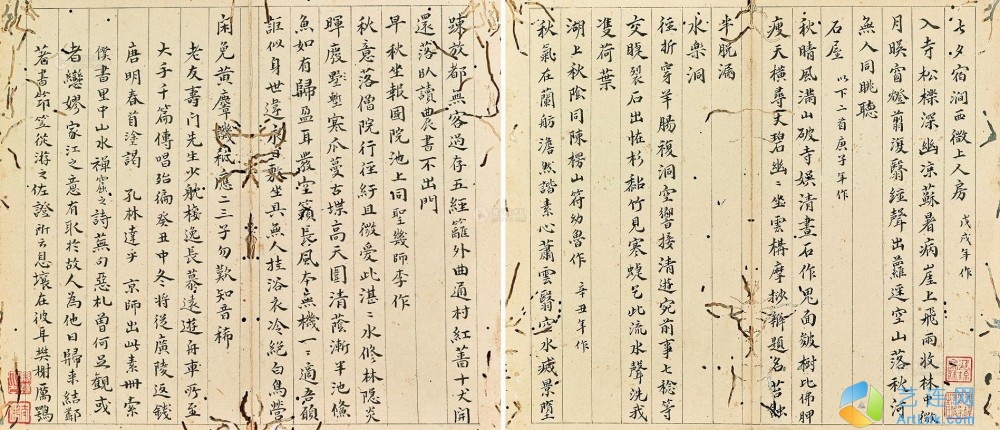 七夕宿澗西徵上人房 戊戌年作
入寺松櫟深幽涼蘇暑病崖上飛雨收林中微
月暎窗燈翦復翳經聲出蘿逕空山落秋河
無人同眺聽
石屋 以下二首庚子年作
秋晴風滿山破寺娱清晝石作鬼面皴樹比佛胛
瘦天橫尋丈碧幽幽坐雲構摩挲辨題名苔蝕
半脫漏
水樂洞
徑折穿羊腸複洞空響接清遊宛前事七稔等
交睫裂石出怪杉黏竹見寒蜨乞此流水聲洗我
隻荷葉
湖上秋陰同陳楞山符幼魯作 辛丑年作
秋氣在蘭舫澹然諧素心蕭雲翳空水疏景墮
疎放都無客過存五經籬外曲通村紅薔十丈開
還落臥讀農書不出門
早秋坐報國院池上同聖幾師李作
秋意落僧院行徑紆且微愛此湛湛水修林隱炎
暉廢墅塹寒瓜蔓古堞高天圍清蔭漸半池儵
魚如有歸盈耳叢空籟長風本無機一一適吾願
詎似身世違初日裹坐具無人挂浴衣冷絕白鳥營
閑免黃塵譏袛應二三子勿歎知音稀
老友壽門先生少躭棲逸長慕遠遊舟車所至
大手千篇傳唱殆徧癸丑中冬將從廣陵返錢
唐明春首塗謁 孔林達乎 京師出此素冊索
僕書里中山水禪窟之詩蕪句惡札曽何足觀或
者戀嫪家江之意有取於故人為他日歸来結鄰
著書茆笠從游之佐證所云息壤在彼耳樊榭厲鶚
艺连网
Artlink.com